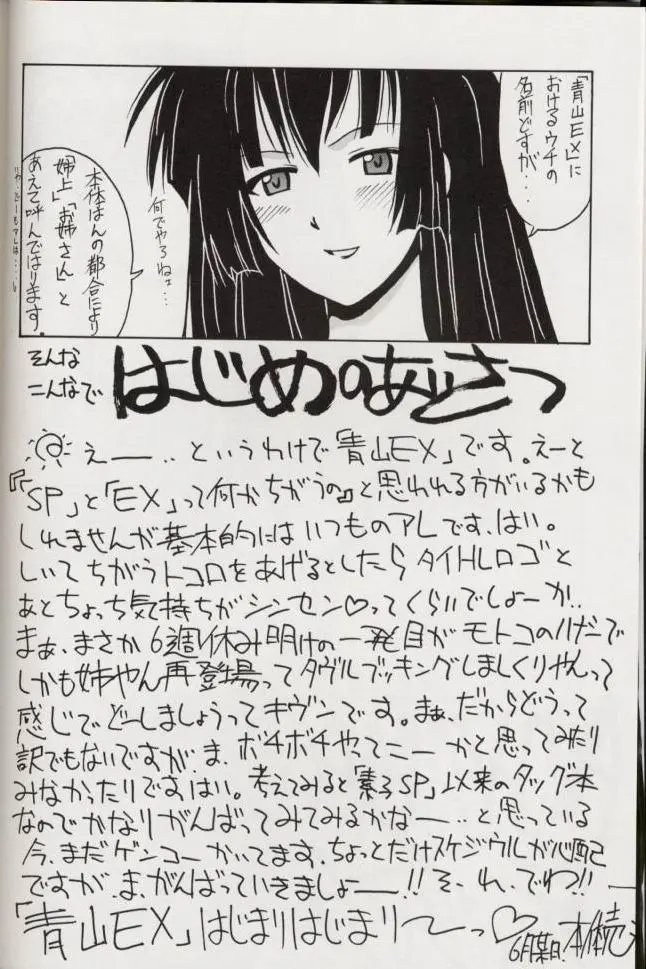 「青山EX」に
おけるウチの
名前どすが・・・
何でやろねェ・・・
本体はんの都合により
姉上」「お姉さん」と
あえて呼んではります。
そんな
こんなで
はじめのあいさつ
えー・・・というわけで「青山EX」です。えーと
『「SP」と「EX」って何がちがうの』と思われる方がいるかも
しれませんが基本的にはいつものアレです、はい。
しいてちがうトコロをあげるとしたらタイトルロゴと
あとちょっち気持ちがシンセン♡ってくらいでしょーか・・
まぁ、まさか6週休み明けの一発目がモトコのハダーで
しかも姉やん再登場ってダヴルブッキングしましくりやんって
感じでどーしましょうってキヴンです。まぁ、だからどうって
訳でもないですが、ま、ボチボチやってこーかと思ってみたり
みなかったりですはい。考えてみると「素子SP」以来のタッグ本
なのでかなりがんばってみてみるかなー・・・と思っている
今、まだゲンコーかいてます。ちょっとだけスケジウルが心配
ですが、ま、がんばっていきましょーー!!そ、れ、でわ!!
「青山EX」はじまりはじまり〜っ♡
6月某日 本体売